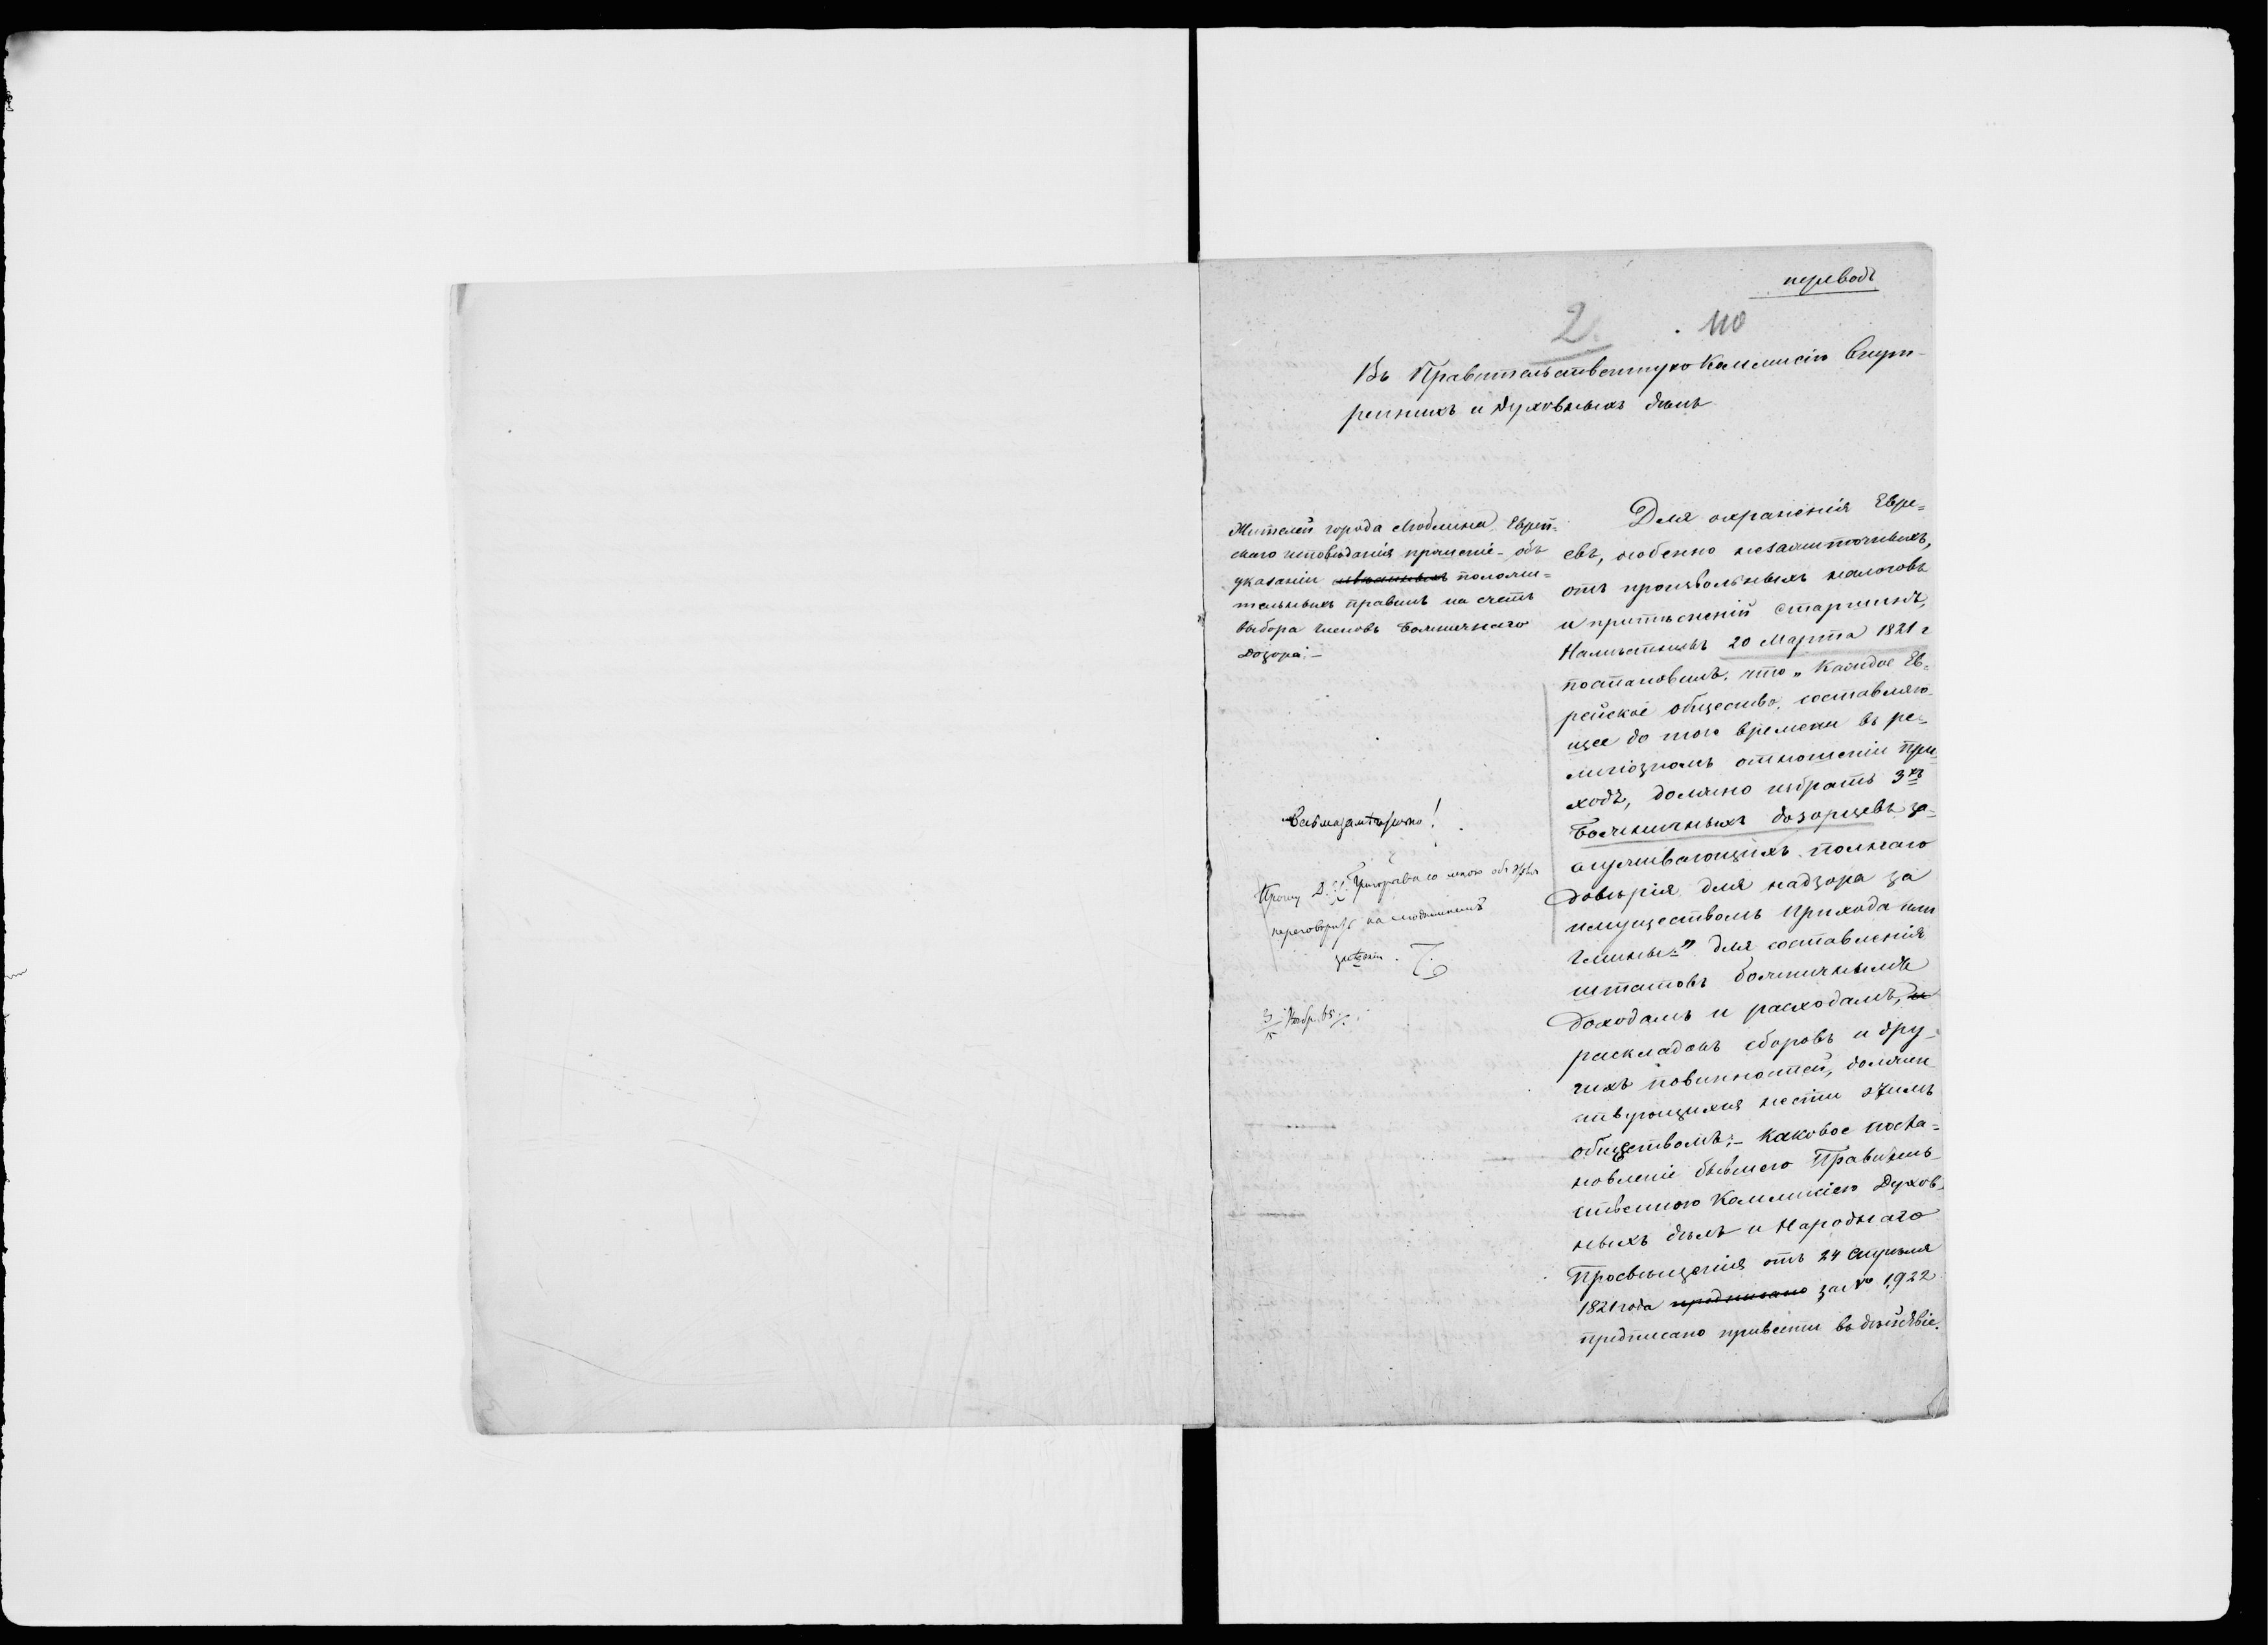 переводъ
2. 110
Въ Правительственную Коммисію Внут-
реннихъ и Духовныхъ дѣлъ
Жителей города Люблина Еврей-
скаго исповѣданія прошеніе - объ
указаніи положи-
тельныхъ правилъ на счетъ
выбора членовъ Божничнаго
Дозора.-
Весьма замѣчательно!
Прошу Д. С. С. со мною объ этомъ
переговорить на
3 Ноября 65.
Для охраненія Евре-
евъ, особенно незажиточныхъ,
отъ произвольныхъ налоговъ
и притѣсненій старшинъ,
Намѣстникъ 20 Марта 1821 г
постановилъ, что „Каждое Ев-
рейское общество, составляю-
щее до того времени въ ре-
лигіозномъ отношеніи при-
ходъ, должно избрать 3хъ
Божничныхъ дозорцевъ за-
служивающихъ полнаго
довѣрія для надзора за
имуществомъ прихода или
гмины" для составленія
штатовъ божничнымъ
доходамъ и расходамъ, и
раскладокъ сборовъ и дру-
гихъ повинностей, должен-
ствующихъ нести этимъ
обществомъ;- каковое поста-
новленіе бывшею Правитель-
ственною Коммисіею Духов-
ныхъ дѣлъ и Народнаго
Просвѣщенія отъ 24 Апрѣля
1821 года предписано за № 1,922
предписано привести въ дѣйствіе.